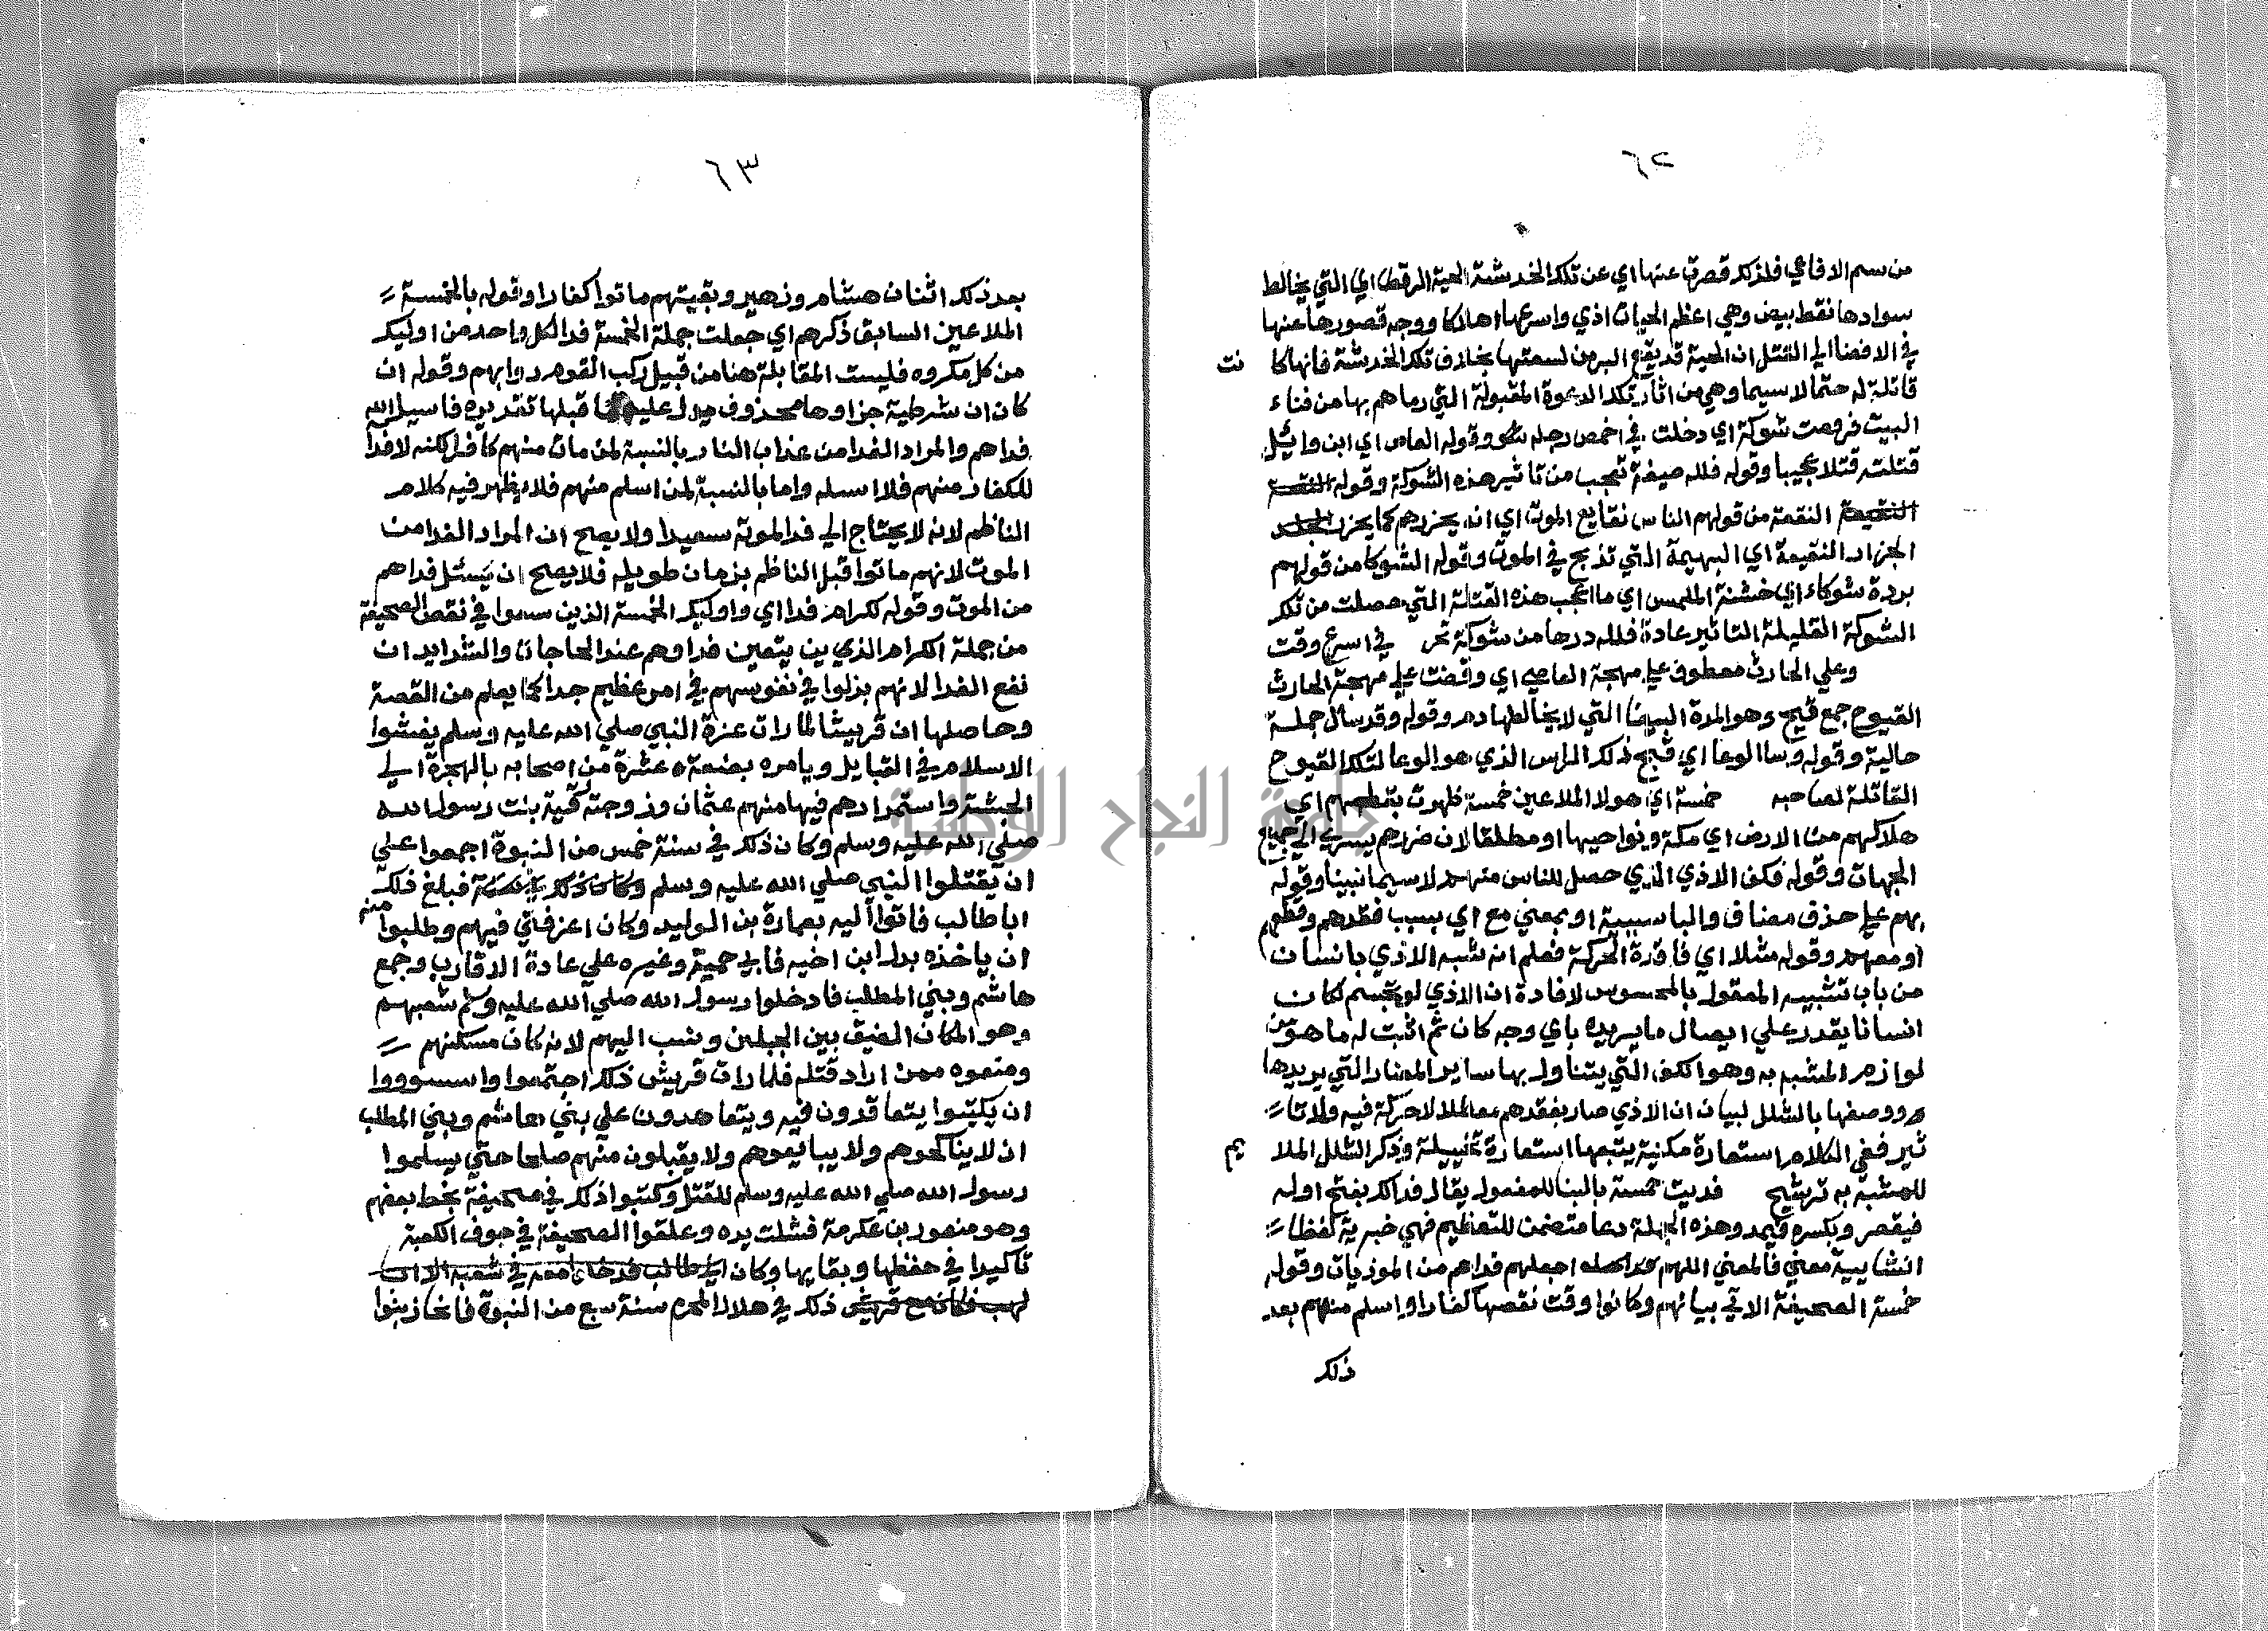 ٦٢
من سم الافاعي فلذلك قصرت عنها اي عن تلك الخدشة الحية الرقطا اي التي يخالط
سوادها نقط بيض وهي اعظم الحيات اذي واسرعها اهلاكا ووجه قصورها عنها
في الافضا الي القتل ان الحية قد يقع البر من لسعتها بخلاف تلك الخدشة فانها كا نت
قاتلة له حتما لاسيما وهي من اثار تلك الدعوة المقبولة التي رماهم بها من فناء
البيت فرقصت شوكة اي دخلت في اخمص رجله وقوله العاص اي ابن وائل
قتلته قتلا عجيبا وقوله فلله صيغة تعجب من تاثير هذه الشوكة وقوله النقعة
النقيعة النقعة من قولهم الناس نقايع الموت اي انه يجزرهم كما يجزر
الجزار النقيعة اي البهيمة التي تذبح في الموت وقوله الشوكا من قولهم
بردة شوكاء اي خشنة الملمس اي ما اعجب هذه القتلة التي حصلت من تلك
الشوكة القليلة التاثير عادة فلله درها من شوكة في اسرع وقت
وعلي الحارث معطوف علي مهجة العاصي اي وقضت علي مهجة الحارث
القيوح جمع قيح وهو المدة البيضا التي لا يخالطها دم وقوله وقد سال جملة
حالية وقوله وسا الوعا اي قبح ذلك الراس الذي هو الوعا لتلك القيوح
القاتلة لصاحبه خمسة اي هولا الملاعين خمسة طهرت بقطعهم اي
هلاكهم من الارض اي مكة ونواحيها او مطلقا لان ضررهم يسري الي جميع
الجهات وقوله فكف الاذي الذي حصل للناس منهم لاسيما نبينا وقوله
بهم علي حذف مضاف والبا سببية او بمعني مع اي بسبب فقدهم وقطعهم
او معهم وقوله شلا اي فاقدة الحركة فعلم انه شبه الاذي بانسان
من باب تشبيه المعقول بالمحسوس لافادة ان الاذي لو تجسم لكان
انسانا يقدر علي ايصال ما يريده باي وجه كان ثم اثبت له ما هو من
لوازم المشبه به وهو الكف التي يتناول بها ساير المضار التي يريدها
ووصفها بالشلل لبيان ان الاذي صار بفقدهم معطلا لا حركة فيه ولا تا
ثير ففي الكلام استعارة مكنية يتبعها استعارة تخييلية وذكر الشلل الملا يم
للمشبه به ترشيح فديت خمسة بالبنا للمفعول يقال فداك بفتح اوله
فيقصر وبكسره فيمد وهذه الجملة دعا متضمن للتعظيم فهي خبرية لفظا
انشاييية معني فالمعني اللهم اجعلهم فداهم من الموذيات وقوله
خمسة الصحيفة الاتي بيانهم وكانوا وقت نقصها كفارا واسلم منهم بعد
ذلك
٦٣
بعد ذلك اثنان هشام وزهير وبقيتهم ماتوا كفارا وقوله بالخمسة
الملاعين السابق ذكرهم اي جعلت جملة الخمسة فدا لكل واحد من اوليك
من كل مكروه فليست المقابلة هنا من قبيل ركب القوم دوابهم وقوله ان
كان ان شرطية جزاوها محذوف يدل عليه ما قبلها تقديره فاسيل الله
فداهم والمراد الفدا من عذاب النار بالنسبة لمن مات منهم كافرا لكنه لا فدا
للكفار منهم فلا اسيله واما بالنسبة لمن اسلم منهم فلا يظهر فيه كلام
الناظم لانه لا يحتاج الي فدا لموته سعيدا ولا يصح ان المراد الفدا من
الموت لانهم ماتوا قبل الناظم بزمان طويل فلا يصح ان يسئل فداهم
من الموت وقوله لكرام فدا اي واوليك الخمسة الذين سعوا في نقض الصحيفة
من جملة الكرام الذي ين يتعين فداوهم عند الحاجات والشدايد ان
نفع الفدا لانهم بذلوا في نفوسهم في امر عظيم جدا كما يعلم من القصة
وحاصلها ان قريشا لما رات عزة النبي صلي الله عليه وسلم بفشوا
الاسلام في القبايل ويامره بضعة عشرة من اصحابه بالهجرة الي
الحبشة واستمرارهم فيها منهم عثمان وزوجته رقية بنت رسول الله
صلي الله عليه وسلم وكان ذلك في سنة خمس من النبوة اجمعوا علي
ان يقتلوا النبي صلي الله عليه وسلم وكان ذلك فبلغ ذلك
ابا طالب فاتوا اليه بعمارة بن الوليد وكان اعز فتي فيهم وطلبوا منه
ان ياخذه بدل ابن اخيه فابي حمية وغيره علي عادة الاقارب وجمع
هاشم وبني المطلب فادخلوا رسول الله صلي الله عليه وسلم شعبهم
وهو المكان الضيق بين الجبلين ونسب اليهم لانه كان مسكنهم
ومنعوه ممن اراد قتله فلما رات قريش ذلك اجتمعوا
ان يكتبوا يتعاقدون فيه ويتعاهدون علي بني هاشم وبني المطلب
ان لا يناكحوهم ولا يبايعوهم ولا يقبلون منهم صلحا حتي يسلموا
رسول الله صلي الله عليه وسلم للقتل وكتبوا ذلك في صحيفة بخط بعضهم
وهو منصور بن عكرمة فشلت يده وعلقوا الصحيفة في جوف الكعبة
تاكيدا في حفظها وبقايها وكان ابي طالب فدخلوا معه في شعبه الا ابا
لهب فكان مع قريش ذلك في هلال المحرم سنة سبع من النبوة فانحاز بنوا
جامعة النجاح الوطنية